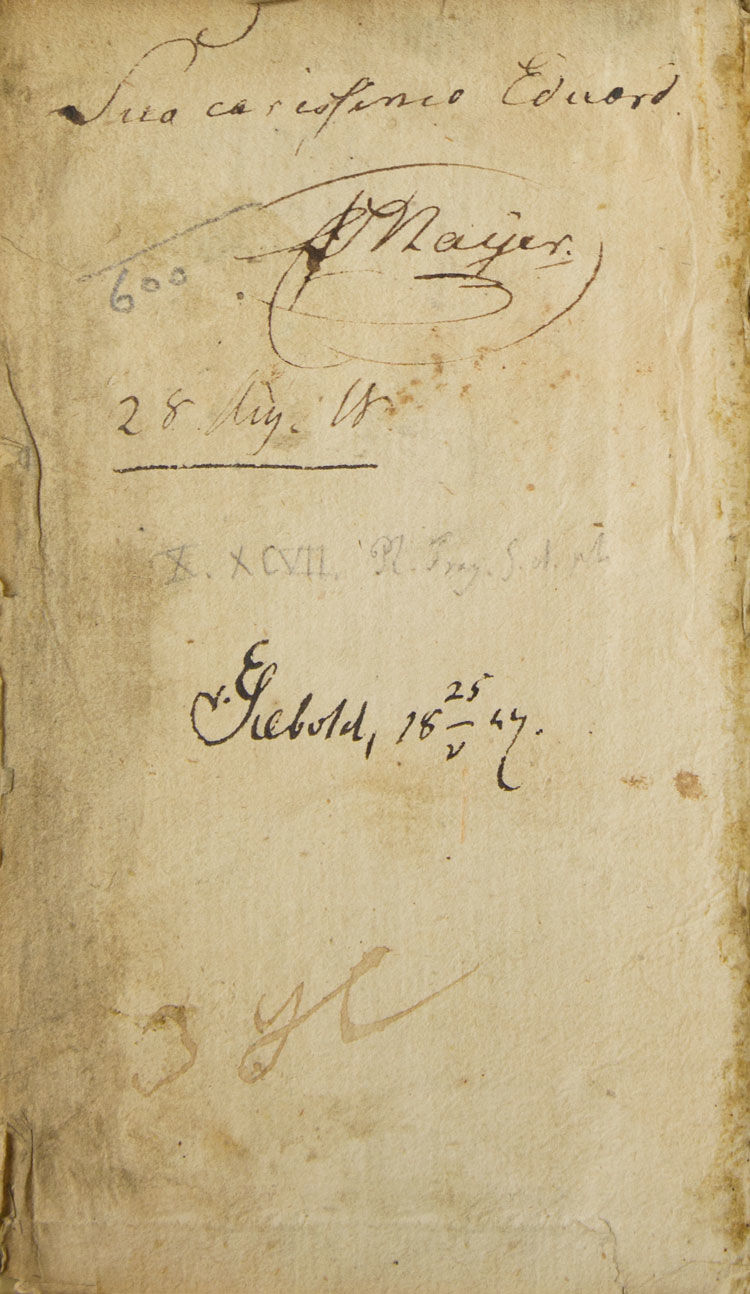 Suo carissimo Eduard
Mayer.
600
28. Aug. 18.
X. XCVII. Pl. Frag. S. N.
v. Siebold, 18 25/V 47.
3